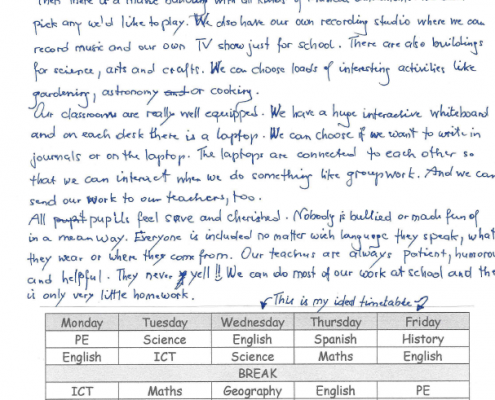 Then there is a music building with all kinds of musical instruments. We
pick any we'd like to play. We also have our own recording studio where we can
record music and our own TV show just for school. There are also buildings
for science, arts and crafts. We can choose loads of interesting activities like
gardening, astronomy and or cooking.
Our classrooms are really well equipped. We have a huge interactive whiteboard
and on each desk there is a laptop. We can choose if we want to write in
journals or on the laptop. The laptops are connected to each other so
that we can interact when we do something like group work. And we can
send our work to our teachers, too.
All pupils feel save and cherished. Nobody is bullied or made fun of
in a mean way. Everyone is included no matter wich language they speak, what
they wear or where they come from. Our teachers are always patient, humorou
and helpful. They never yell!! We can do most of our work at school and the
is only very little homework.
This is my ideal timetable
Monday Tuesday Wednesday Thursday Friday
PE Science English Spanish History
English ICT Science Maths English
BREAK
ICT Maths Geography English PE